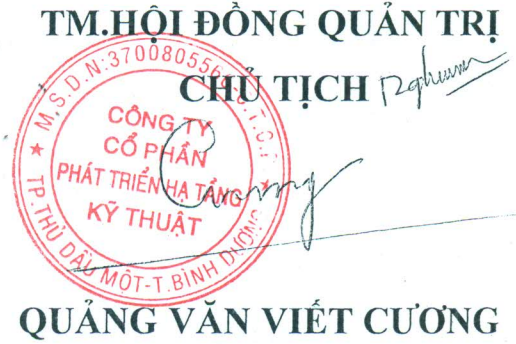 TM.HỘI ĐỒNG QUẢN TRỊ
CHỦ TỊCH
M.S.D.N:37008055 C.T.C.P
CÔNG TY
CỔ PHẦN
PHÁT TRIỂN HẠ TẦNG
KỸ THUẬT
TP.THỦ DẦU MỘT-T.BÌNH DƯƠNG
Cuong
QUẢNG VĂN VIẾT CƯƠNG